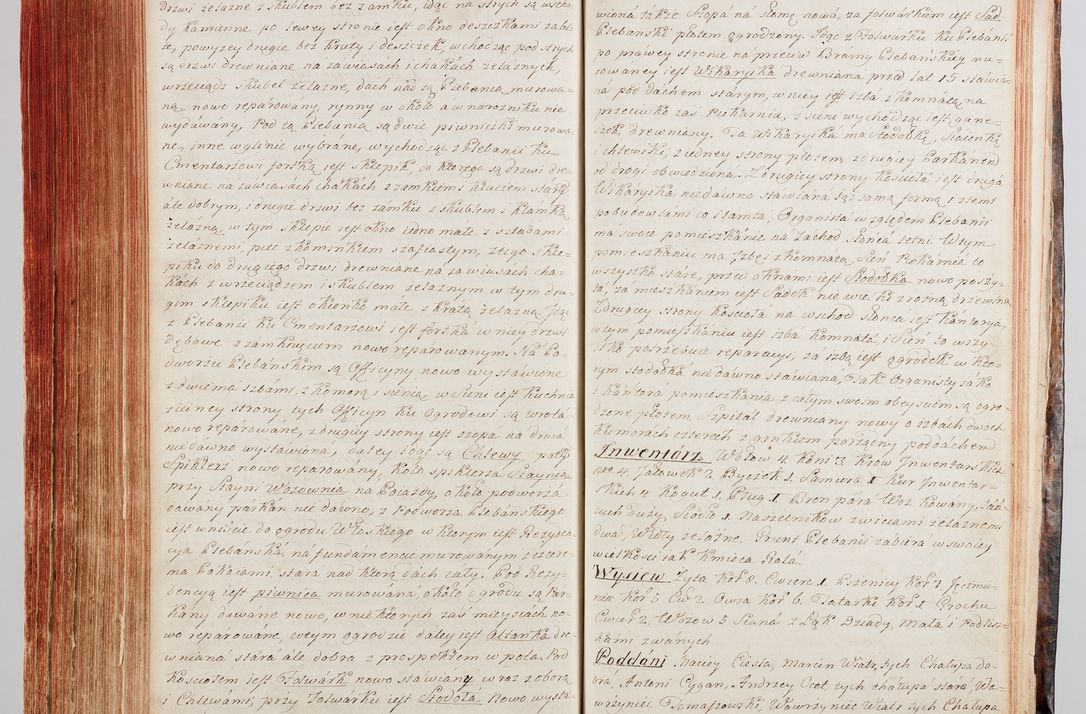 drzwi żelazne z skublem bez zamku, idąc na strych są wscho-
dy kamienne po lewey stronie iest okno deszczkami zabi-
te, powyżey drugie bez kraty i deszczek, wchodząc pod strych
są drzwi drewniane, na zawiasach i chakach żelaznych,
wrzeciądz skubel żelazne, dach nad tą Plebanią murowa-
ną, nowo reparowany, rynny w około a w narożniku nie
wydawany, Pod tą Plebanią są dwie piwniczki murowa-
ne, inne w glinie wybrane, wychodząc z Plebanii ku
Cmentarzowi fortką iest sklepik, do którego są drzwi dre-
wniane na zawiasach chakach z zamkiem i kluczem starą
ale dobrym, i drugie drzwi bez zamku z skublem i klamką
żelazną, w tym sklepie iest okno iedno małe z sztabami
żelaznemi, piec z kominkiem szafiastym, z tego skle-
piku do drugiego drzwi drewniane na zawiasach cha-
kach z wrzeciądzem i skublem żelaznym w tym dru-
gim sklepiku iest okienko małe z kratą żelazną. Idąc
z Plebanii ku Cmentarzowi iest fortka w niey drzwi
dębowe z zamknięciem nowo reparowanym. Na Po-
dworzu Plebańskim są Officyny nowo wystawione
z dwiema izbami, z komorą sienią, w Sieni iest kuchnia
z iedney strony tych Officyn ku Ogrodowi są wrota
nowo reparowane, z drugiey strony iest szopa na drwa
niedawno wystawiona, daley idąc są Chlewy, potym
Spiklerz nowo reparowany, Koło spiklerza Staynia
przy Stayni Wozownia na Poiazdy, około podworza
dawany parkan nie dawno, z Podworza Plebańskiego
iest wniście do ogrodu Włoskiego w którym iest Rezyden-
cya Plebańska, na fundamencie murowanym z cztere-
ma Pokoiami, stara nad którą dach cały. Pod Rezy-
dencyą iest piwnica murowana, około Ogrodu są Par-
kany dawane nowe, w niektórych zaś mieyscach no-
wo reparowane, w tym ogrodzie daley iest Altanka dre-
wniana stara ale dobra z prospektem w pola. Pod
kościołem iest Folwark nowo stawiany wraz z oborą
i Chlewami, przy Folwarku iest Stodoła Nowo wysta-
wiona także Szopa na Siemę nowa, za folwarkiem iest Sad
Plebański płotem ogrodzony. Idąc z Folwarku ku Plebanii
po prawey stronie na przeciw Bramy Plebańskiey mu-
rowaney iest Wikaryika drewniana przed lat 15 stawia-
na pod dachem starym, w niey iest izba z Komnatą, na
przeciwko zaś Piekarnia, z sieni wychodząc iest gane-
czek drewniany. Ta Wikaryika ma Stodołkę, Staienkę
i chlewiki, z iedney strony płotem z drugiey Parkanem
od drogi obwiedziona. Z drugiey strony Kościoła iest druga
Wikaryika niedawno stawiona tąż samą formą z temi
pobudowłami co tamta, Organista względem Plebanii
ma swoie pomieszkanie na Zachod Słońca letni. W tym
pomieszkaniu ma Izbę z komnatą, Sień Piekarnię to
wszystko stare, przed oknami iest Stodołka nowo poszy-
ta, za mieszkaniem iest Sadek nie wielki z rożną drzewiną
Z drugiey strony Kościoła na wschod słońca iest Kantorya,
w tym pomieszkaniu iest izba komnata i sień to wszy-
stko potrzebuie reparacyi, za izbą iest ogrodek w któ-
rym stodołka niedawno stawiana, Tak Organisty iako
i Kantora pomieszkania z całym swoim obeyściem są ogro-
dzone płotem. Szpital drewniany nowy o izbach dwoch
komorach czterech z gankiem porządny pod dachem
Inwentarz Wołow 4. Koni 3. Krow Inwentarskich
nro 4. Jałowek 2. Byczek 1. Samura 1 Kur Inwentar-
skich 4 kogut 1. Pług 1. Bron para Woz kowany,
duży Siodło 1. Naszelnikow z wiciami żelaznemi
dwa, Widły żelazne. Grunt Plebanii zabiera w swoiey
wielkości iak Kmieca Rola.
Wysiew Żyta kor 8. Cwierc 1 Pszenicy Kor 7 Jęczmie-
nia Kor 5 Cw 2 Owsa Kor 6. Tatarki Kor 1 Grochu
Cwier 2, Wozow 5 Siana z Łąk Dziady, Mała, i Podlisz-
kami zwanych
Poddani Maciey Ciesla, Marcin Wiatr, tych Chałupa do-
bra, Antoni Cygan, Andrzey Ocet tych chałupa stara Wa-
wrzyniec Tomaszowski, Wawrzyniec Wiatr tych Chałupa